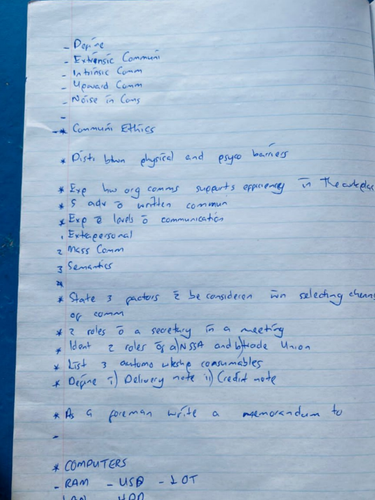 - Define
- Extrinsic Communi
- Intrinsic Comm
- Upward Comm
- Noise in Coms
-
-* Communi Ethics
* Disti btwn physical and psyco barriers
* Exp how org comms supports efficiency in the
* 5 adv o written commun
* Exp levels o communication
1 Extrapersonal
2 Mass Comm
3 Semantics
*
* State 3 factors 2 be consideron wn selecting
of comm
* 2 roles o a secretary in a meeting
* Ident 2 roles of a) NSSA and b) trade Union
* List 3 automo wkshp consumables
* Define i) Delivery note ii) Credit note
* As a foreman write a memorandum to
-
* COMPUTERS
- RAM - USB - IOT